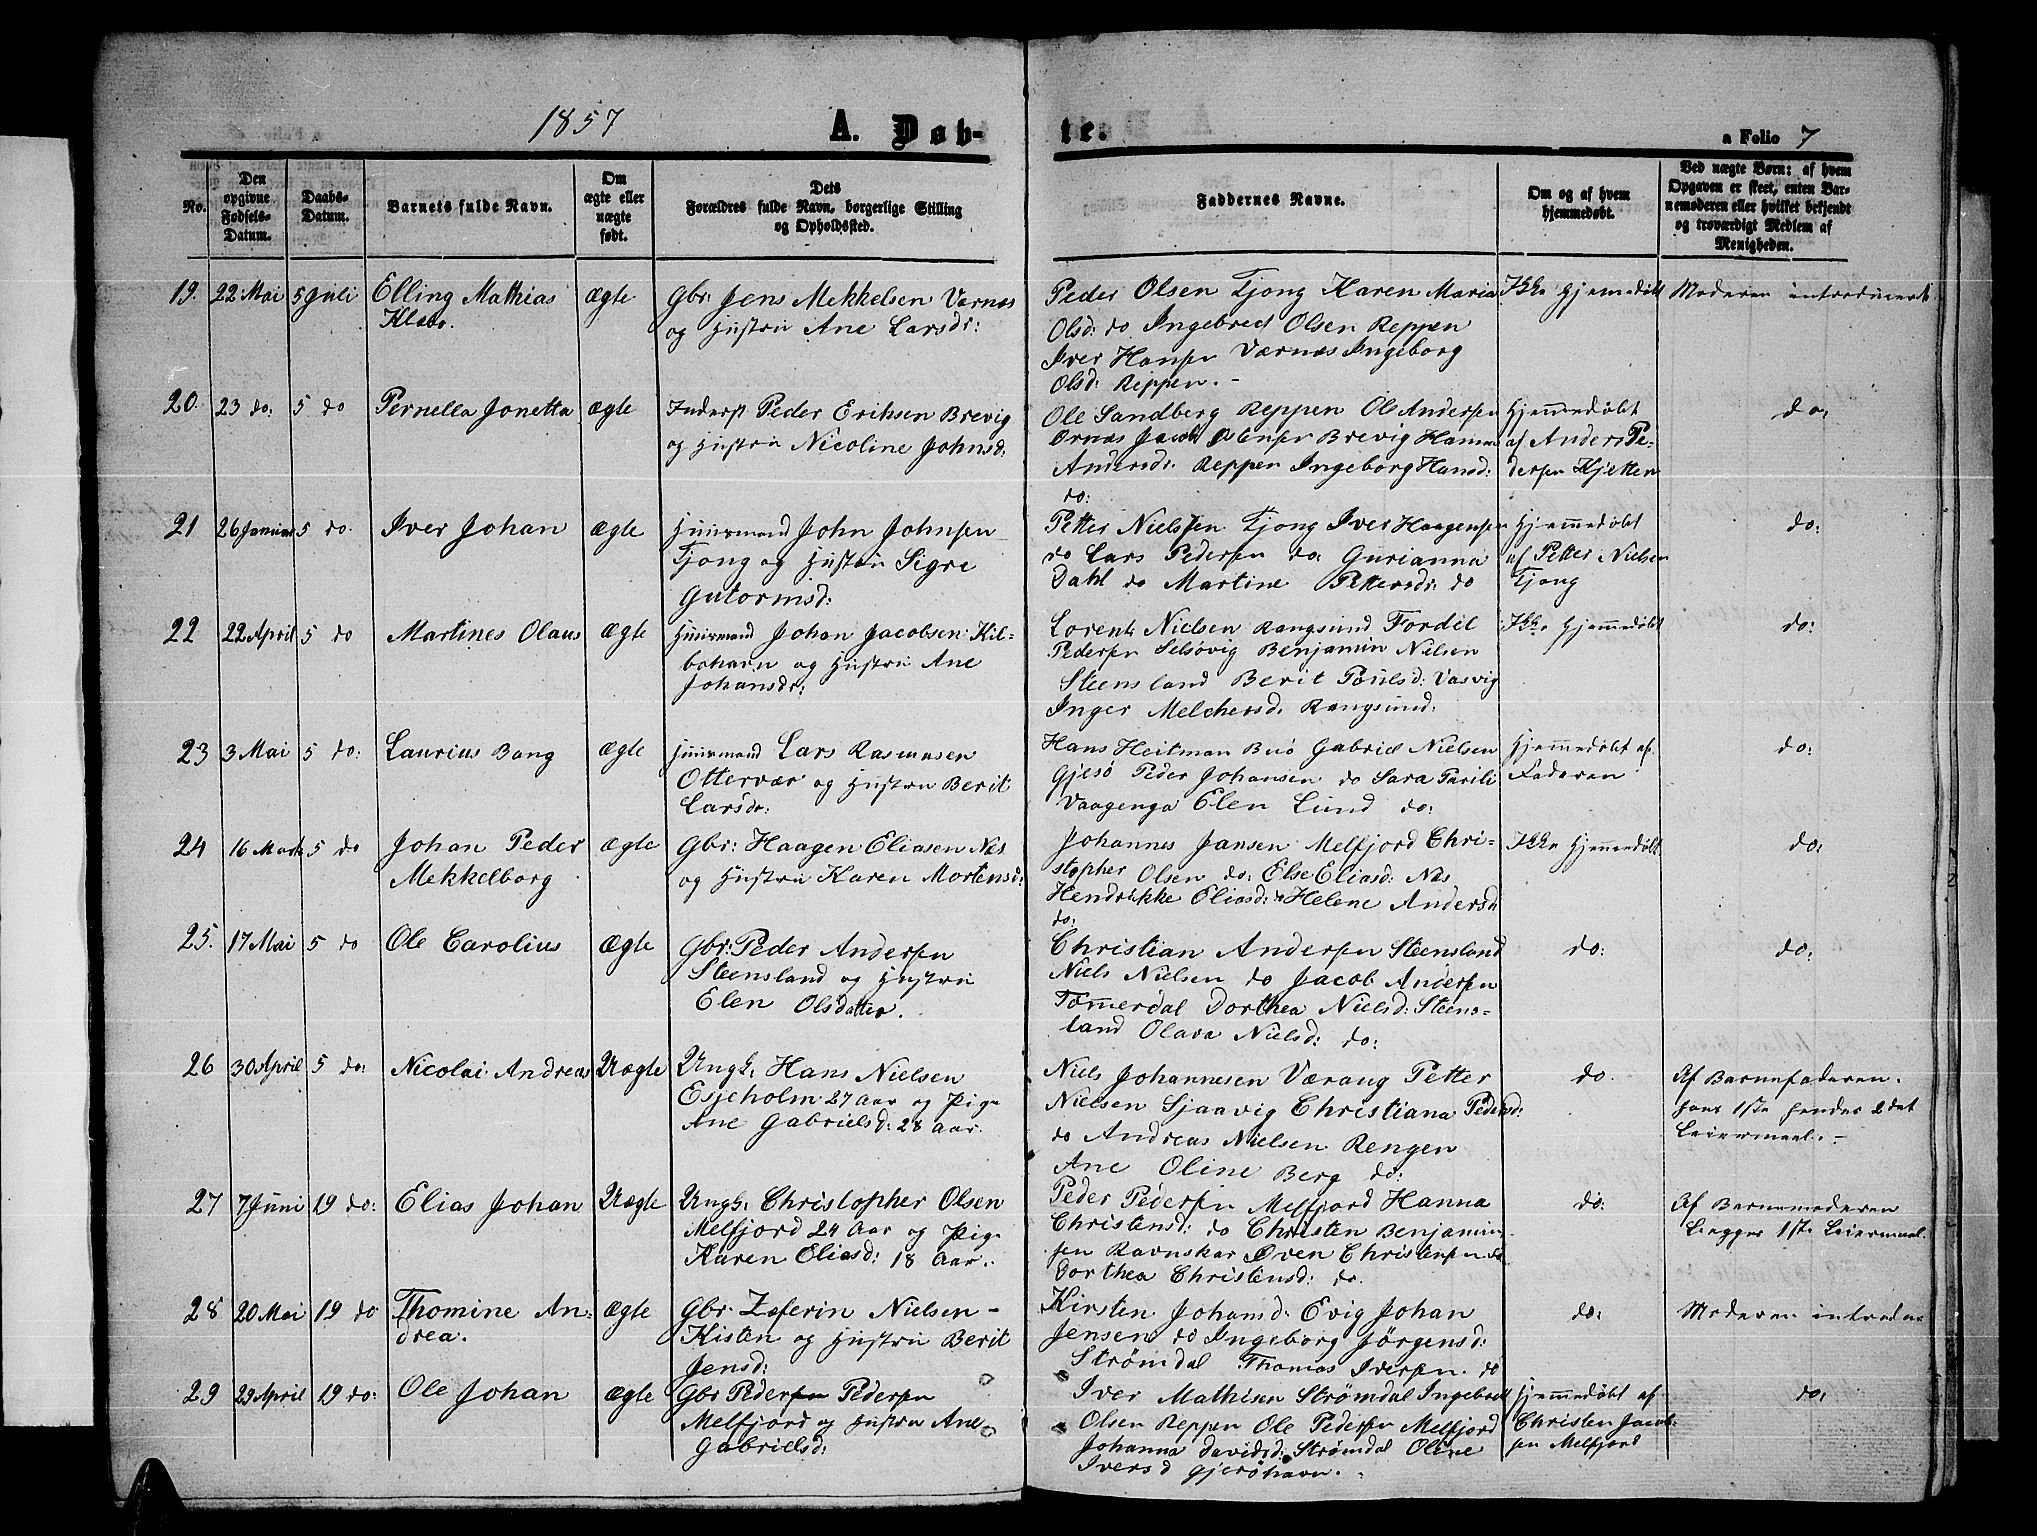 1857
A. Døb-
te.
a Folio 7
No.
Den opgivne Fødsels-Datum.
Daabs-Datum.
Barnets fulde Navn.
Om ægte eller uægte født.
Dets Forældres fulde Navn, borgerlige Stilling og Opholdssted.
Faddernes Navne.
Om og af hvem hjemmedøbt.
Ved uægte Børn: af hvem Opgaven er skeet, enten Barnemoderen eller hvilket bekjendt og troværdigt Medlem af Menigheden.
19. 22 Mai 5 Juli Elling Mathias Ægte Gbr: Jens Mekkelsen Værnæs Peder Olsen Tjong Karen Maria Ikke Hjemmedøbt Moderen introduceret
Klæbo. og Hustru Ane Larsdr: Olsd: do Ingebret Olsen Reppen
Iver Hansen Værnæs Ingeborg
Olsd: Reppen. -
20. 23 do: 5 do Pernella Jonetta Ægte Inderst Peder Eriksen Brevig Ole Sandberg Reppen Ole Andersen Hjemmedøbt do:
og Hustru Nicoline Johnsd: Ornæs Jacob Brevig Hanna af Anders Pe-
Andersd: Reppen Ingeborg Hansd: dersen Kjetten
do:
21 26 Januar 5 do. Iver Johan Ægte Huusmand John Johnsen Petter Nielsen Tjong Iver Haagensen Hjemmedøbt do:
Tjong og Hustru Sigre do Lars Pedersen do Gurianna af Petter Nielsen
Gutormsd: Dahl do Martine Pettersd: do Tjong
22 22 April 5 do Martines Olaus Ægte Huusmand Johan Jacobsen Kil- Lorents Nielsen Rangsund Fordel Ikke Hjemmedøbt do:
bohavn og Hustru Ane Pedersen Selsøvig Benjamin Nielsen
Johansdr: Steensland Berit Poulsd: Vasvig
Inger Melchersd: Rangsund:
23 3 Mai 5 do: Laurius Bang Ægte Huusmand Lars Rasmusen Hans Heitman Buø Gabriel Nielsen Hjemmedøbt af do:
Ottervær og Hustru Berit Gjesø Peder Johansen do Sara Parili Faderen
Larsdr: Vaagenga Elen Lund do:
24 16 Marts 5 do Johan Peder Ægte Gbr: Haagen Eliasen Næs Johannes Jansen Melfjord Chri- Ikke Hjemmedøbt do:
Mekkelborg og Hustru Karen Mortensd: stopher Olsen do: Else Eliasd: Næs
Hendrikke Eliasd: Helene Andersd
do:
25. 17 Mai 5 do Ole Carolius Ægte Gbr: Peder Andersen Christian Andersen Steensland do: do:
Steensland og Hustru Niels Nielsen do Jacob Andersen
Elen Olsdatter. Tømerdal Dorthea Nielsd: Steens-
land Olava Nielsd: do:
26 30 April 5 do: Nicolai Andreas Uægte Ungk: Hans Nielsen Niels Johannesen Værang Petter do. Af Barnefaderen.
Esjeholm 27 Aar og Pige Nielsen Sjaavig Christiana Pedersd: hans 1ste hendes 2det
Ane Gabrielsd: 28 Aar. do Andreas Nielsen Rengen Leiermaal. -
Ane Oline Berg do:
27 7 Juni 19 do: Elias Johan Uægte Ungk: Christopher Olsen Peder Pedersen Melfjord Hanna do: Af Barnemoderen
Melfjord 24 Aar og Pige Christensd: do Christen Benjamin- Begges 1ste Leiermaal.
Karen Eliasd: 18 Aar. sen Ravnskar Even Christensen do
Dorthea Christensd: do.
28 20 Mai 19 do Thomine An- Ægte Gbr. Zeferin Nielsen - Kirsten Johansd: Evig Johan do: Moderen introduc
drea. Kisten og Hustru Berit Jensen do Ingeborg Jørgensd:
Jensd: Strømdal Thomas Iversen. do
29 29 April 19 do: Ole Johan Ægte Gbr Pedersen Pedersen Iver Mathisen Strømdal Ingebrett Hjemmedøbt af do:
Melfjord og Hustru Ane Olsen Reppen Ole Pedersen Melfjord Christen Jacob-
Gabrielsd: Johanna Davidsd: Strømdal Oline sen Melfjord
Iversd Gjerøhavn.